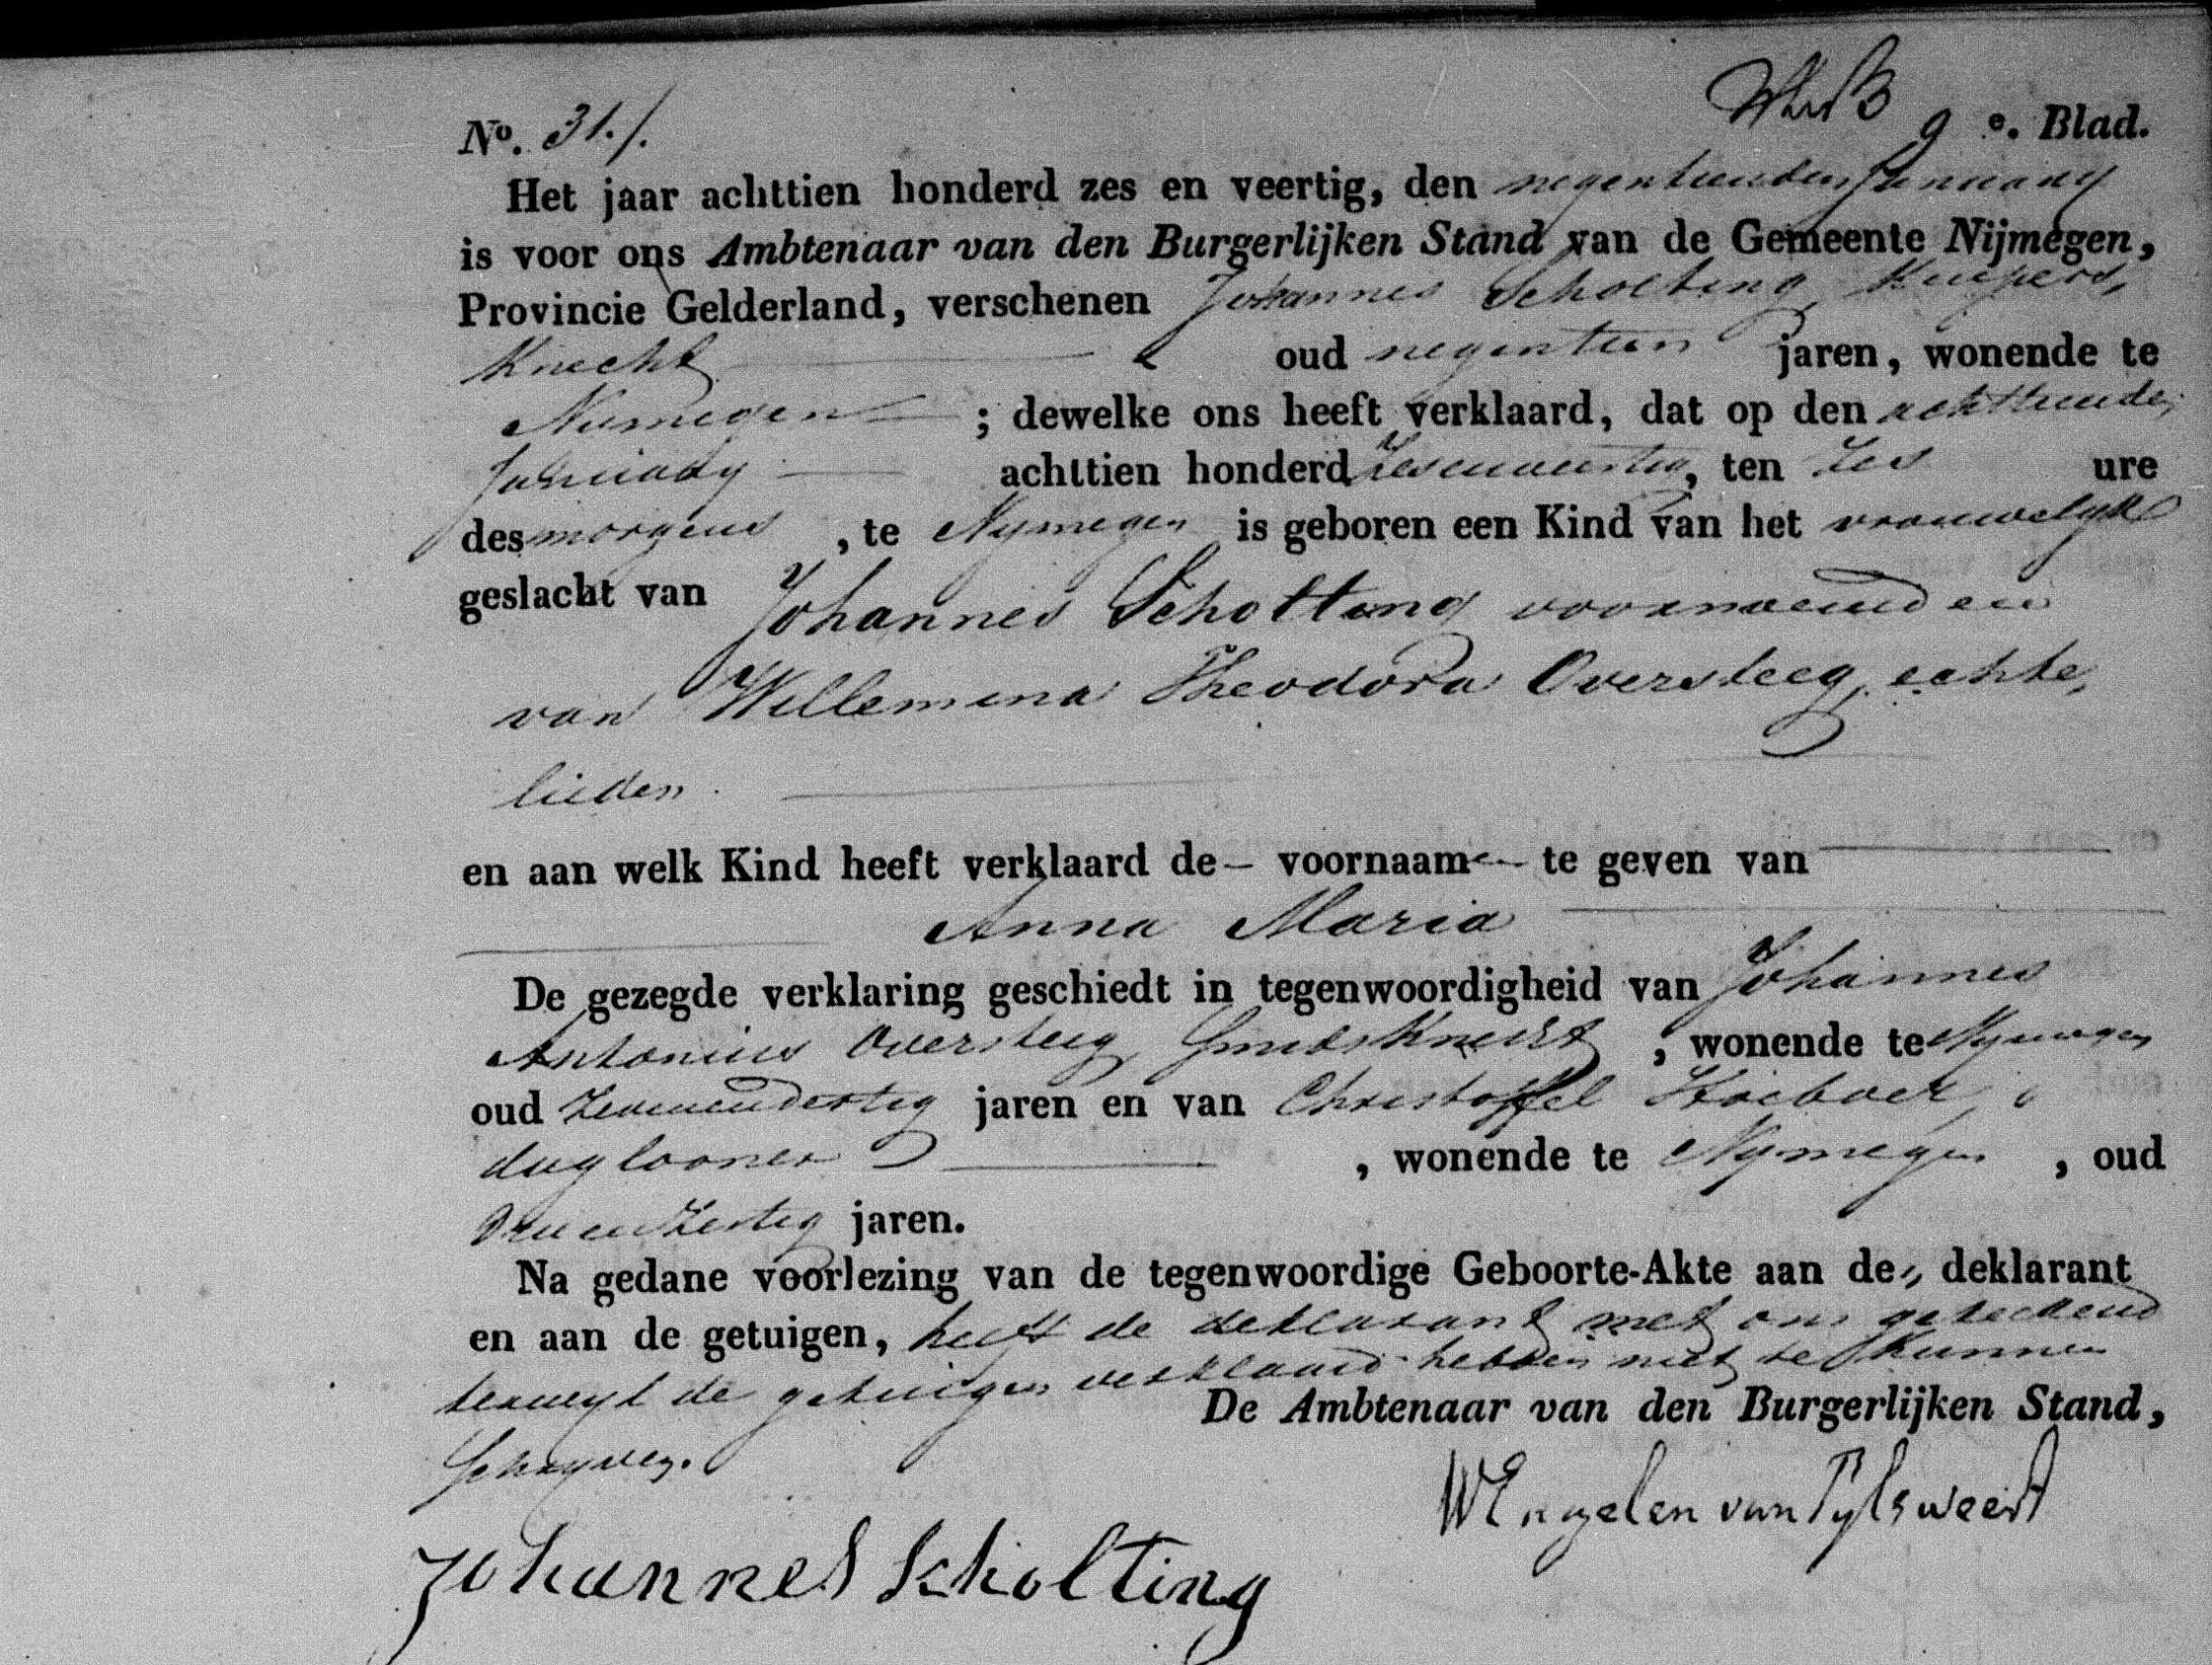 No. 31./.
9 e. Blad.
Het jaar achttien honderd zes en veertig, den negentienden January
is voor ons Ambtenaar van den Burgerlijken Stand van de Gemeente Nijmegen,
Provincie Gelderland, verschenen Johannes Scholting, Kuipers
Knecht oud negentien jaren, wonende te
Nymegen ; dewelke ons heeft verklaard, dat op den achttiende
January achttien honderd zesenveertig, ten zes ure
des morgens , te Nymegen is geboren een Kind van het vrouwelyk
geslacht van Johannes Scholting voornoemd en
van Willemina Theodora Oversteeg, echte
lieden.
en aan welk Kind heeft verklaard de voornaamen te geven van
Anna Maria
De gezegde verklaring geschiedt in tegenwoordigheid van Johannes
Antonius Oversteeg, Smidsknecht , wonende te Nymegen
oud zevenendertig jaren en van Christoffel
daglooner , wonende te Nymegen , oud
jaren.
Na gedane voorlezing van de tegenwoordige Geboorte-Akte aan de deklarant
en aan de getuigen, heeft de deklarant met ons geteekend
terwyl de getuigen verklaard hebben niet te kunnen
De Ambtenaar van den Burgerlijken Stand,
Schryven.
WEngelen van Pylsweert
Johannes Scholting